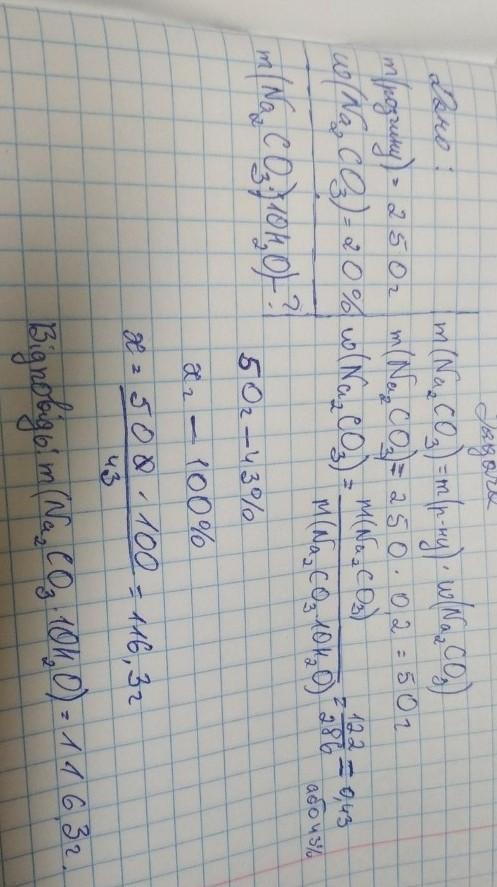 Задача
Дано:
m(розчину) = 250г
w(Na2CO3) = 20%
m(Na2CO3·10H2O) - ?
m(Na2CO3) = m(р-ну) · w(Na2CO3)
m(Na2CO3) = 250 · 0,2 = 50г
w(Na2CO3) = M(Na2CO3) / M(Na2CO3·10H2O) = 122 / 286 = 0,43
або 43%
50г - 43%
xг - 100%
x = 50г · 100 / 43 = 116,3г
Відповідь: m(Na2CO3·10H2O) = 116,3г.